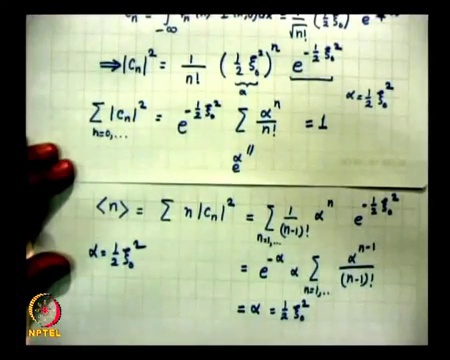 ⇒|Cn|² = 1/n! (½ ξ₀²)ⁿ e^(-½ ξ₀²)
α
α = ½ ξ₀²
∑ n=0,... |Cn|² = e^(-½ ξ₀²) ∑ αⁿ/n! = 1
e^α
⟨n⟩ = ∑ n |Cn|² = ∑ n=1,... 1/(n-1)! αⁿ e^(-½ ξ₀²)
α = ½ ξ₀²
= e^(-α) α ∑ n=1,... α^(n-1)/(n-1)!
= α = ½ ξ₀²
NPTEL